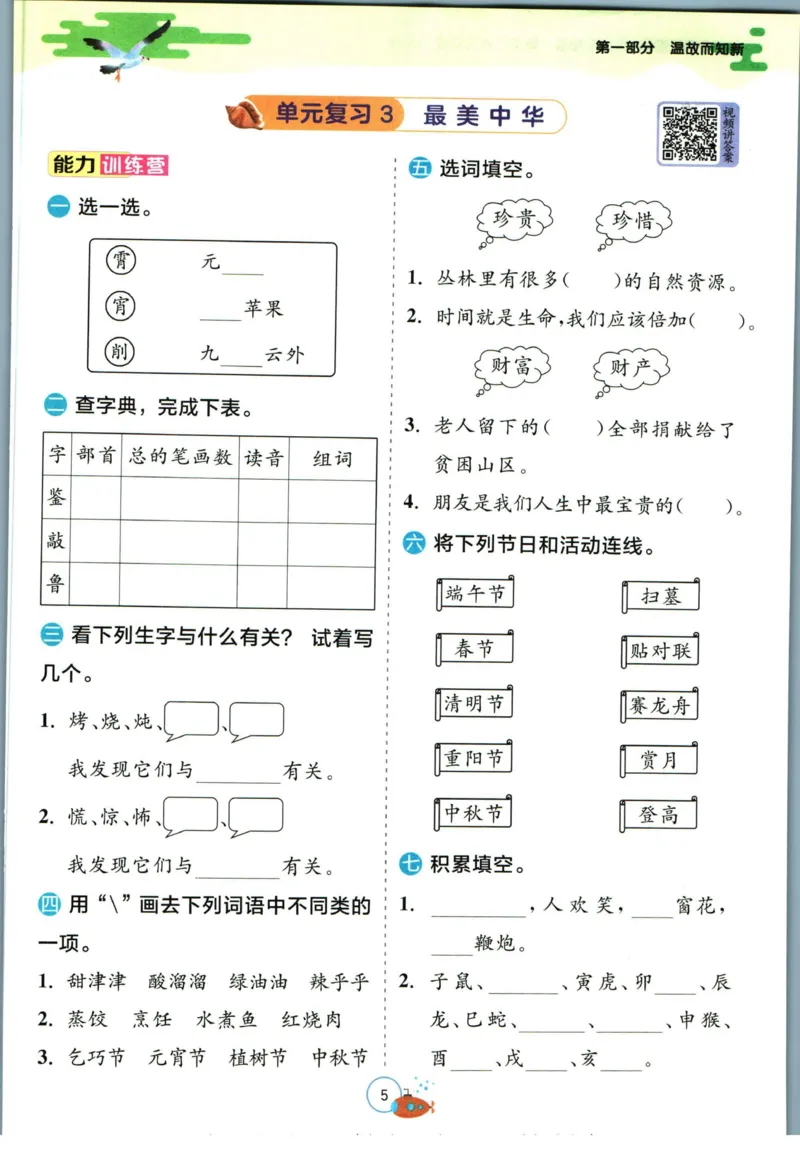 第一部分 温故而知新
单元复习 3 最美中华
视频讲答案
能力训练营
一 选一选。
霄 元____
宵 ____苹果
削 九____云外
二 查字典，完成下表。
字 部首 总的笔画数 读音 组词
鉴
敲
鲁
三 看下列生字与什么有关？ 试着写
几个。
1. 烤、烧、炖、 、
我发现它们与________有关。
2. 慌、惊、怖、 、
我发现它们与________有关。
四 用“\”画去下列词语中不同类的
一项。
1. 甜津津 酸溜溜 绿油油 辣乎乎
2. 蒸饺 烹饪 水煮鱼 红烧肉
3. 乞巧节 元宵节 植树节 中秋节
五 选词填空。
珍贵 珍惜
1. 丛林里有很多( )的自然资源。
2. 时间就是生命,我们应该倍加( )。
财富 财产
3. 老人留下的( )全部捐献给了
贫困山区。
4. 朋友是我们人生中最宝贵的( )。
六 将下列节日和活动连线。
端午节 扫墓
春节 贴对联
清明节 赛龙舟
重阳节 赏月
中秋节 登高
七 积累填空。
1. _________,人欢笑,____窗花,
____鞭炮。
2. 子鼠、______、寅虎、卯____、辰
龙、巳蛇、______、______、申猴、
酉____、戌____、亥____。
5